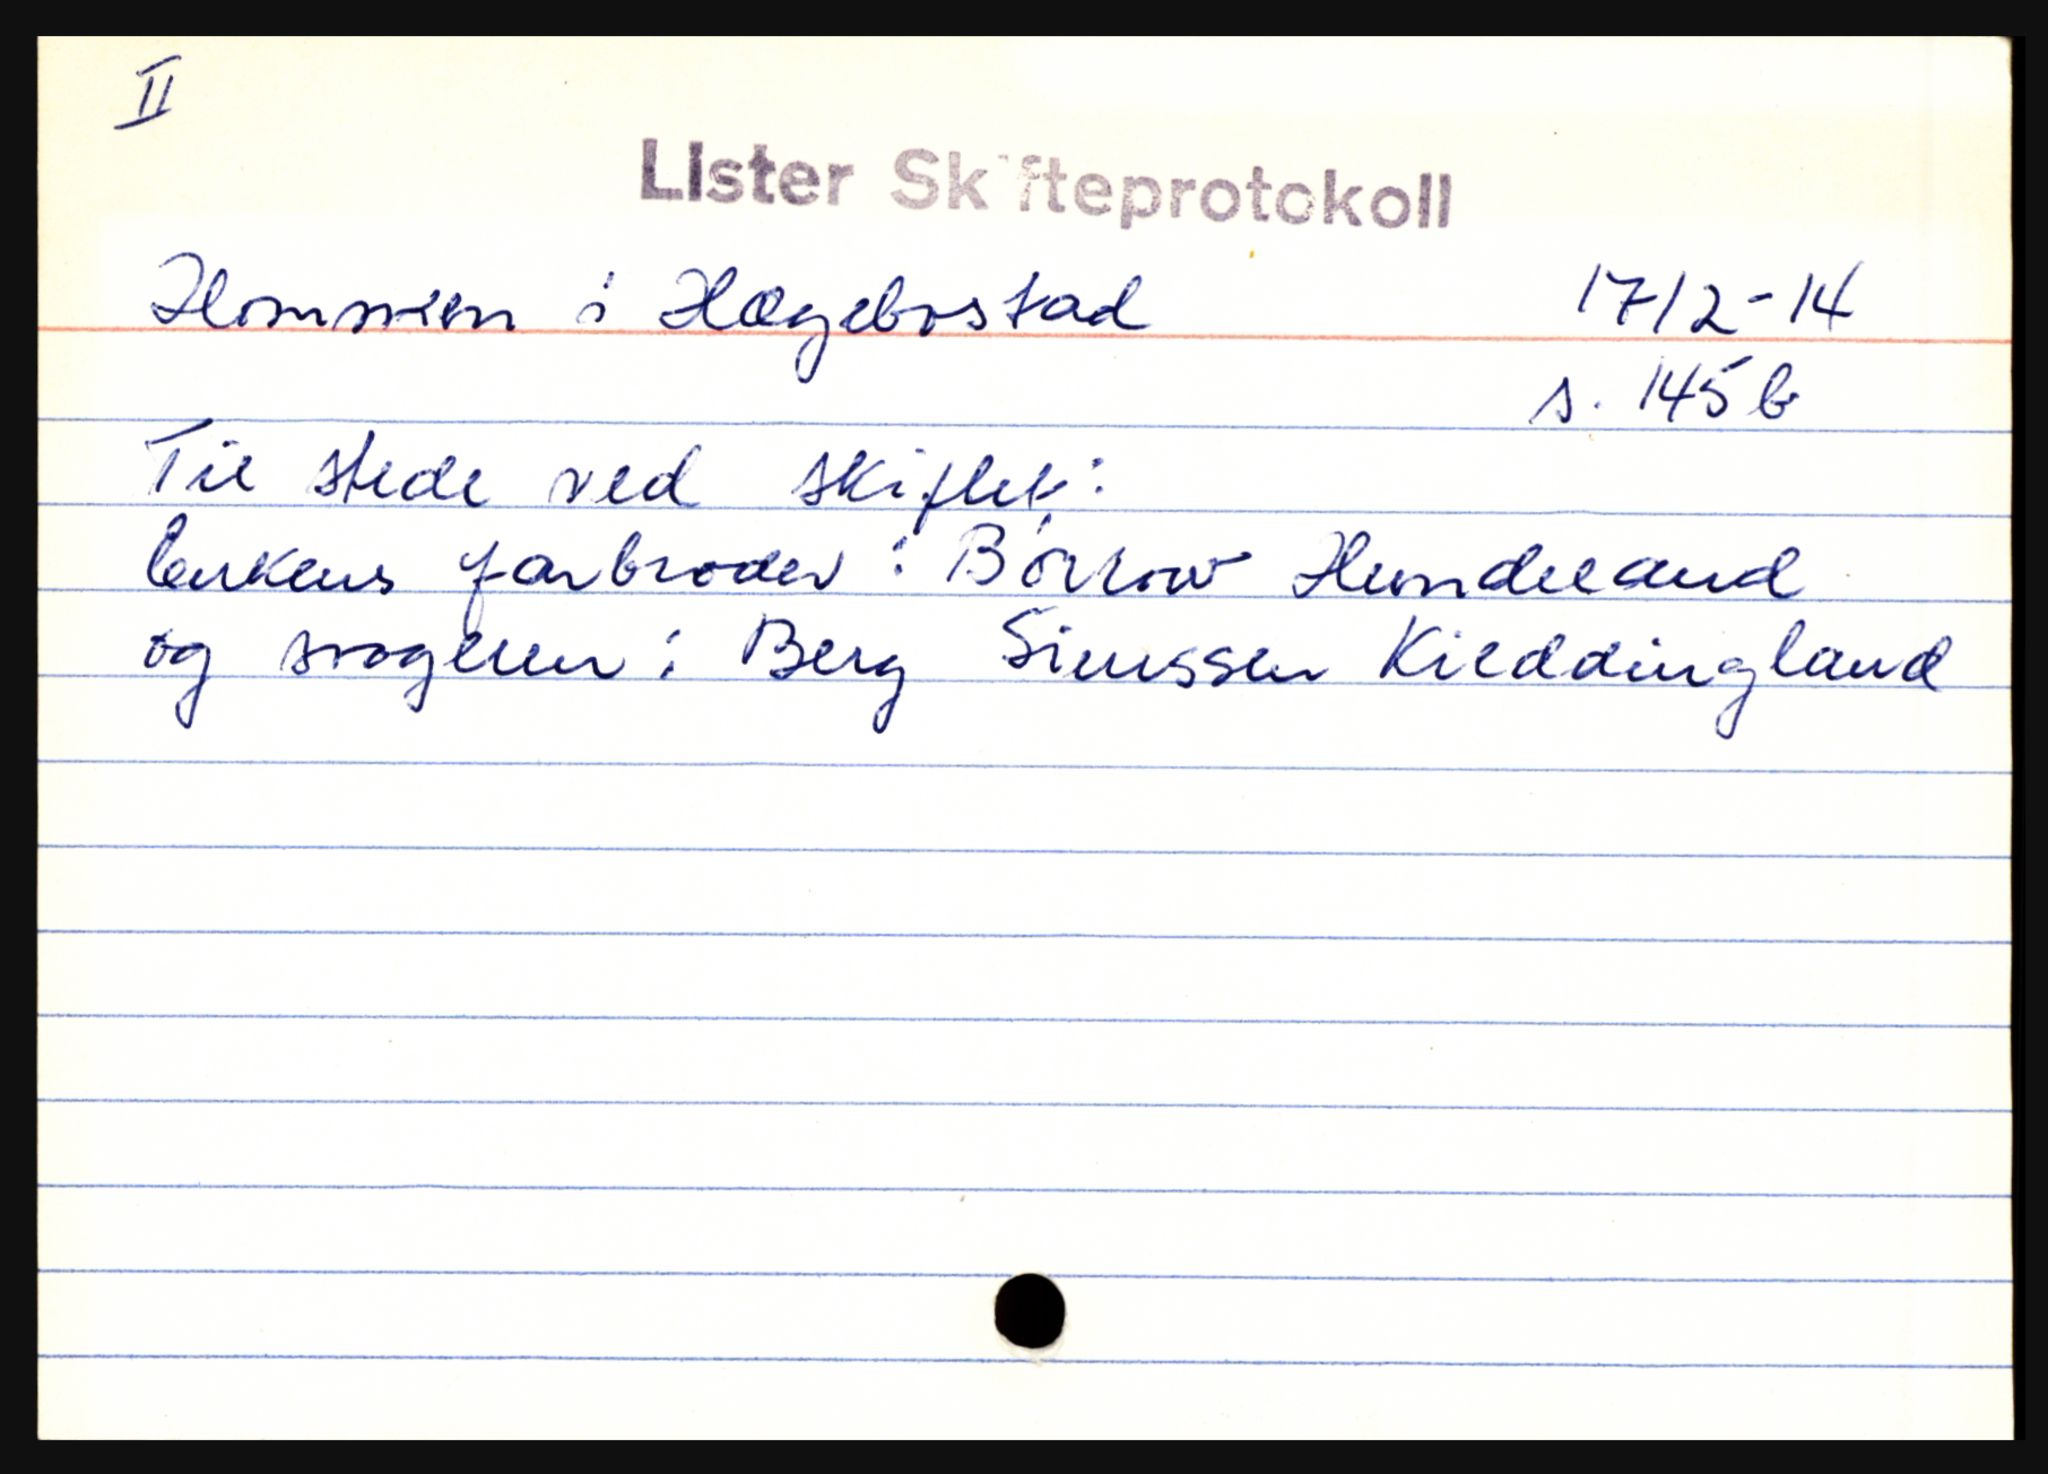 II
Lister Skifteprotokoll
Homsmen i Hægebostad 17/2-14
s. 145 b
Til stede ved skiftet:
Enkens farbroder: Børrow Hundeland
og svogeren: Berg Simssen Kieddingland